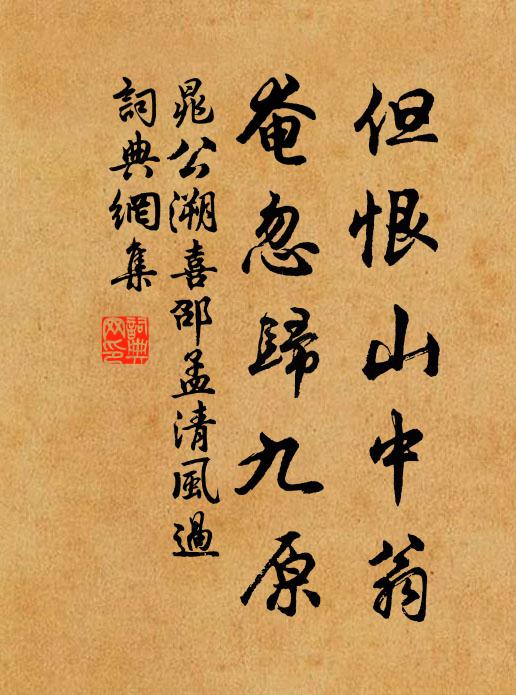 但恨山中翁
奄忽歸九原
晁公溯喜邵孟清風過
詞典網集
詞典網印